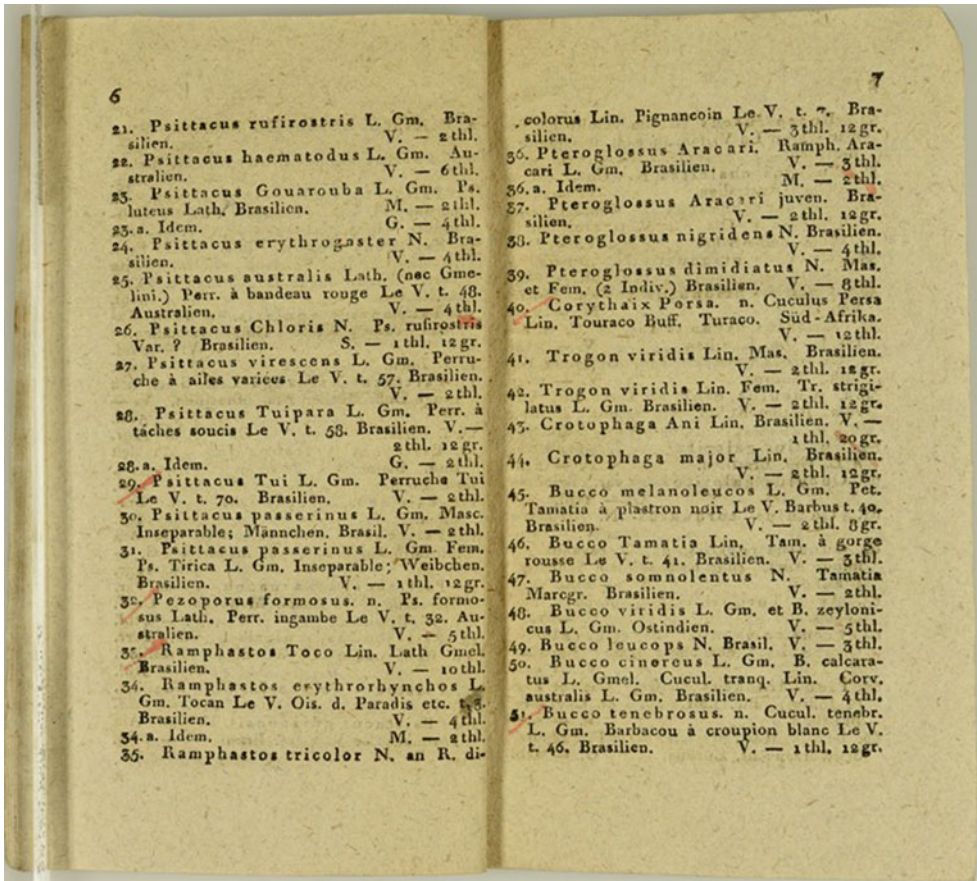 6
21. Psittacus rufirostris L. Gm. Bra-
silien. V. — 2thl.
22. Psittacus haematodus L. Gm. Au-
stralien. V. — 6thl.
23. Psittacus Gouarouba L. Gm. Ps.
luteus Lath. Brasilien. M. — 2thl.
23.a. Idem. G. — 4thl.
24. Psittacus erythrogaster N. Bra-
silien. V. — 4thl.
25. Psittacus australis Lath. (nec Gme-
lini.) Perr. à bandeau rouge Le V. t. 48.
Australien. V. — 4thl.
26. Psittacus Chloris N. Ps. rufirostris
Var. ? Brasilien. S. — 1thl. 12gr.
27. Psittacus virescens L. Gm. Perru-
che à ailes varices Le V. t. 57. Brasilien.
V. — 2thl.
28. Psittacus Tuipara L. Gm. Perr. à
táches soucis Le V. t. 58. Brasilien. V.—
2thl. 12gr.
28.a. Idem. G. — 2thl.
29. Psittacus Tui L. Gm. Perruche Tui
Le V. t. 70. Brasilien. V. — 2thl.
30. Psittacus passerinus L. Gm. Masc.
Inseparable; Männchen. Brasil. V. — 2thl.
31. Psittacus passerinus L. Gm. Fem.
Ps. Tirica L. Gm. Inseparable; Weibchen.
Brasilien. V. — 1thl. 12gr.
32. Pezoporus formosus. n. Ps. formo-
sus Lath. Perr. ingambe Le V. t. 32. Au-
stralien. V. — 5thl.
33. Ramphastos Toco Lin. Lath Gmel.
Brasilien. V. — 10thl.
34. Ramphastos erythrorhynchos L.
Gm. Tocan Le V. Ois. d. Paradis etc. t. 3.
Brasilien. V. — 4thl.
34.a. Idem. M. — 2thl.
35. Ramphastos tricolor N. an R. di-
7
colorus Lin. Pignancoin Le V. t. 7. Bra-
silien. V. — 3thl. 12gr.
36. Pteroglossus Aracari. Ramph. Ara-
cari L. Gm. Brasilien. V. — 3thl.
36.a. Idem. M. — 2thl.
37. Pteroglossus Aracari juven. Bra-
silien. V. — 2thl. 12gr.
38. Pteroglossus nigridens N. Brasilien.
V. — 4thl.
39. Pteroglossus dimidiatus N. Mas.
et Fem. (2 Indiv.) Brasilien. V. — 8thl.
40. Corythaix Porsa. n. Cuculus Persa
Lin. Touraco Buff. Turaco. Süd-Afrika.
V. — 12thl.
41. Trogon viridis Lin. Mas. Brasilien.
V. — 2thl. 12gr.
42. Trogon viridis Lin. Fem. Tr. strigi-
latus L. Gm. Brasilien. V. — 2thl. 12gr.
43. Crotophaga Ani Lin. Brasilien. V. —
1thl. 20gr.
44. Crotophaga major Lin. Brasilien.
V. — 2thl. 12gr.
45. Bucco melanoleucos L. Gm. Pet.
Tamatia à plastron noir Le V. Barbus t. 40.
Brasilien. V. — 2thl. 8gr.
46. Bucco Tamatia Lin. Tam. à gorge
rousse Le V. t. 41. Brasilien. V. — 3thl.
47. Bucco somnolentus N. Tamatia
Marcgr. Brasilien. V. — 2thl.
48. Bucco viridis L. Gm. et B. zeyloni-
cus L. Gm. Ostindien. V. — 5thl.
49. Bucco leucops N. Brasil. V. — 3thl.
50. Bucco cinereus L. Gm. B. calcara-
tus L. Gmel. Cucul. tranq. Lin. Corv.
australis L. Gm. Brasilien. V. — 4thl.
51. Bucco tenebrosus. n. Cucul. tenebr.
L. Gm. Barbacou à croupion blanc Le V.
t. 46. Brasilien. V. — 1thl. 12gr.